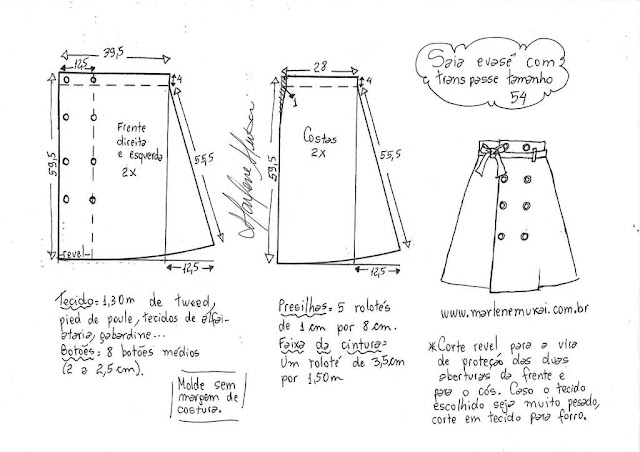 39,5
12,5
4
Frente
direita
e esquerda
2x
59,5
55,5
revel
12,5
28
4
1
Costas
2x
59,5
55,5
12,5
Marlene Mukai
Saia evasê com
transpasse tamanho
54
www.marlenemukai.com.br
Tecido= 1,30m de tweed,
pied de poule, tecidos de alfai-
ataria, gabardine...
Botões= 8 botões médios
(2 a 2,5cm).
Molde sem
margem de
costura.
Presilhas= 5 rolotés
de 1cm por 8cm.
Faixa da cintura=
Um roloté de 3,5cm
por 1,50m
*Corte revel para a vira
de proteção das duas
aberturas da frente e
para o cós. Caso o tecido
escolhido seja muito pesado,
corte em tecido para forro.